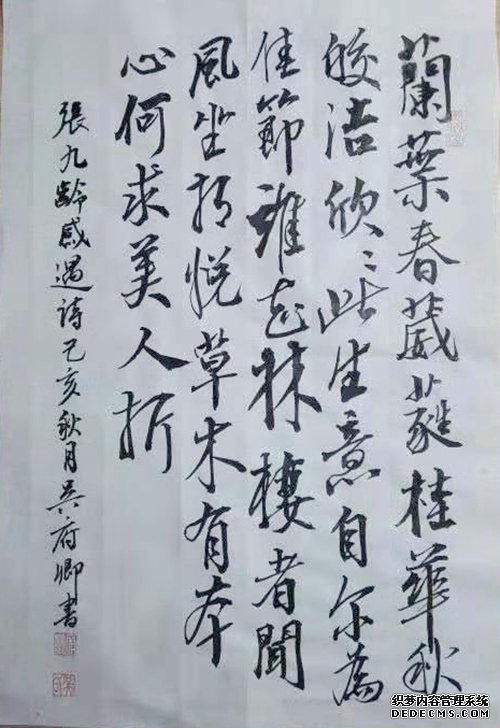 蘭葉春葳蕤桂華秋
皎洁欣〻此生意自尔為
佳節誰知林棲者聞
風坐相悦草木有本
心何求美人折
張九齡感遇詩己亥秋月吴府卿書
织梦内容管理系统
DEDECMS.COM